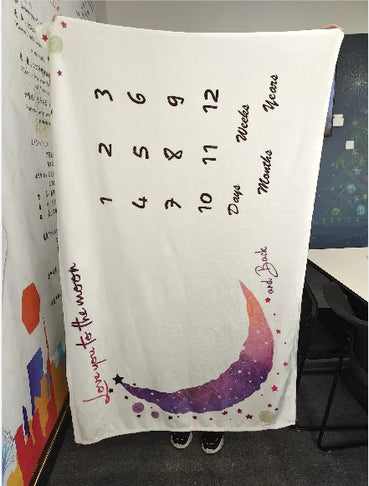 Love you to the moon
and Back
1 2 3
4 5 6
7 8 9
10 11 12
Days Weeks
Months Years